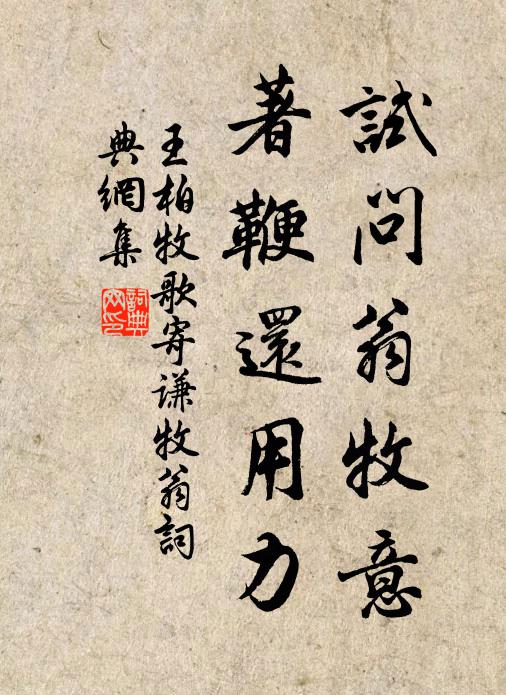 試問翁牧意
著鞭還用力
王柏牧歌寄謙牧翁詞
典網集
詞典
网印